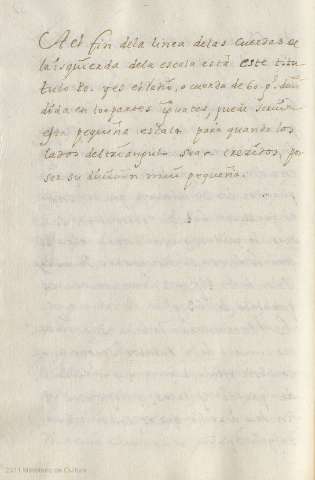 Al el fin dela linea delas cuerdas de
la izquierda dela escala està este titu-
tulo Ro. y es el
o cuerda de 60. gs. divi
dida en
partes iguales, puede servir
esta pequeña escala para quando los
lados del triangulo sean crezidos, por
ser su division mui pequeña.
2021 Ministerio de Cultura